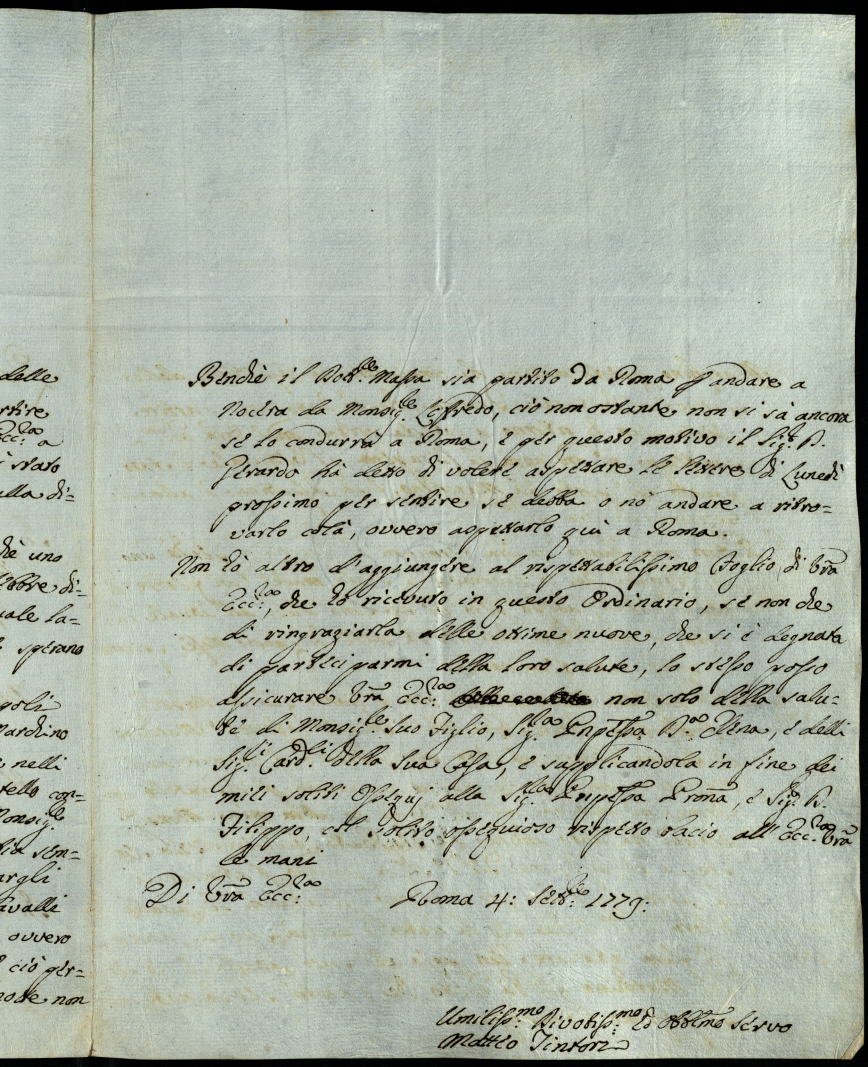 delle
rtire
Ecc:za a
è stato
alla di=
chè uno
febbre di=
uale la=
è sperano
apoli
Marchino
e nelli
tello con=
Monsig.e
bia sem=
argli
Cavalli
ovvero
ciò per=
note non
Benchè il Dott.re Massa sia partito da Roma p andare a
Nocera da Monsig.re Loffredo, ciò non ostante non si sà ancora
se lo condurrà a Roma, e per questo motivo il Sig.r D.
Gerardo hà detto di volere aspettare le lettere di Lunedì
prossimo per sentire se debba o nò andare a ritro=
varlo colà, ovvero aspettarlo quì a Roma.
Non hò altro d'aggiungere al rispettabilissimo Foglio di Vrã
Ecc:za, che hò ricevuto in questo Ordinario, se non che
di ringraziarla delle ottime nuove, che si è degnata
di parteciparmi della loro salute, lo stesso posso
assicurare Vrã Ecc:za non solo della salu=
te di Monsig.re Suo Figlio, Sig.ra Pnpessa D.a Elena, e delli
Sig.i Card.li della Sua Casa, e supplicandola in fine dei
miei soliti Ossequj alla Sig.ra Pnpessa Pronã, e Sig. D.
Filippo, col solito ossequioso rispetto bacio all' Ecc:za Vrã
le mani
Di Vrã Ecc:za Roma 4: Sett:re 1779:
Umiliss:mo Divotiss:mo Ed Obblmo Servo
Matteo Tintori